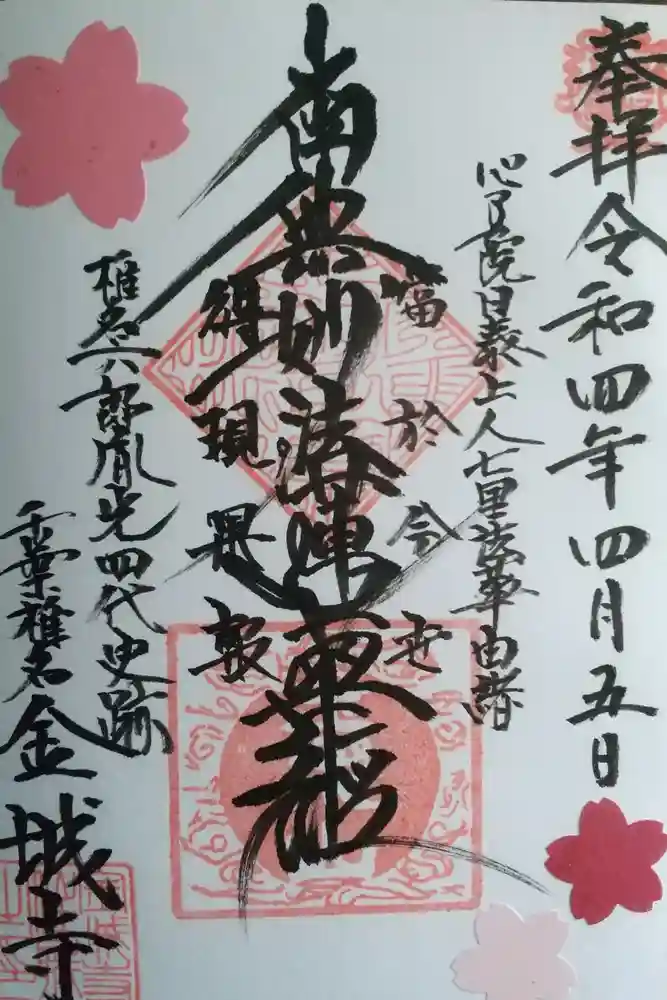 奉拝 令和四年四月五日
心了院日義上人七里法華由緒
當於今世
南無妙法蓮華経
得現果報
椎名六郎胤光四代史跡
千葉椎名 金城寺